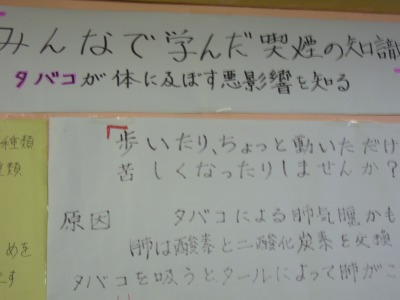 みんなで学んだ喫煙の知識
タバコが体に及ぼす悪影響を知る
種類
種類
めを
です
歩いたり、ちょっと動いただけ
苦しくなったりしませんか?
原因 タバコによる肺気腫かも
肺は酸素と二酸化炭素を交換
タバコを吸うとタールによって肺がこ